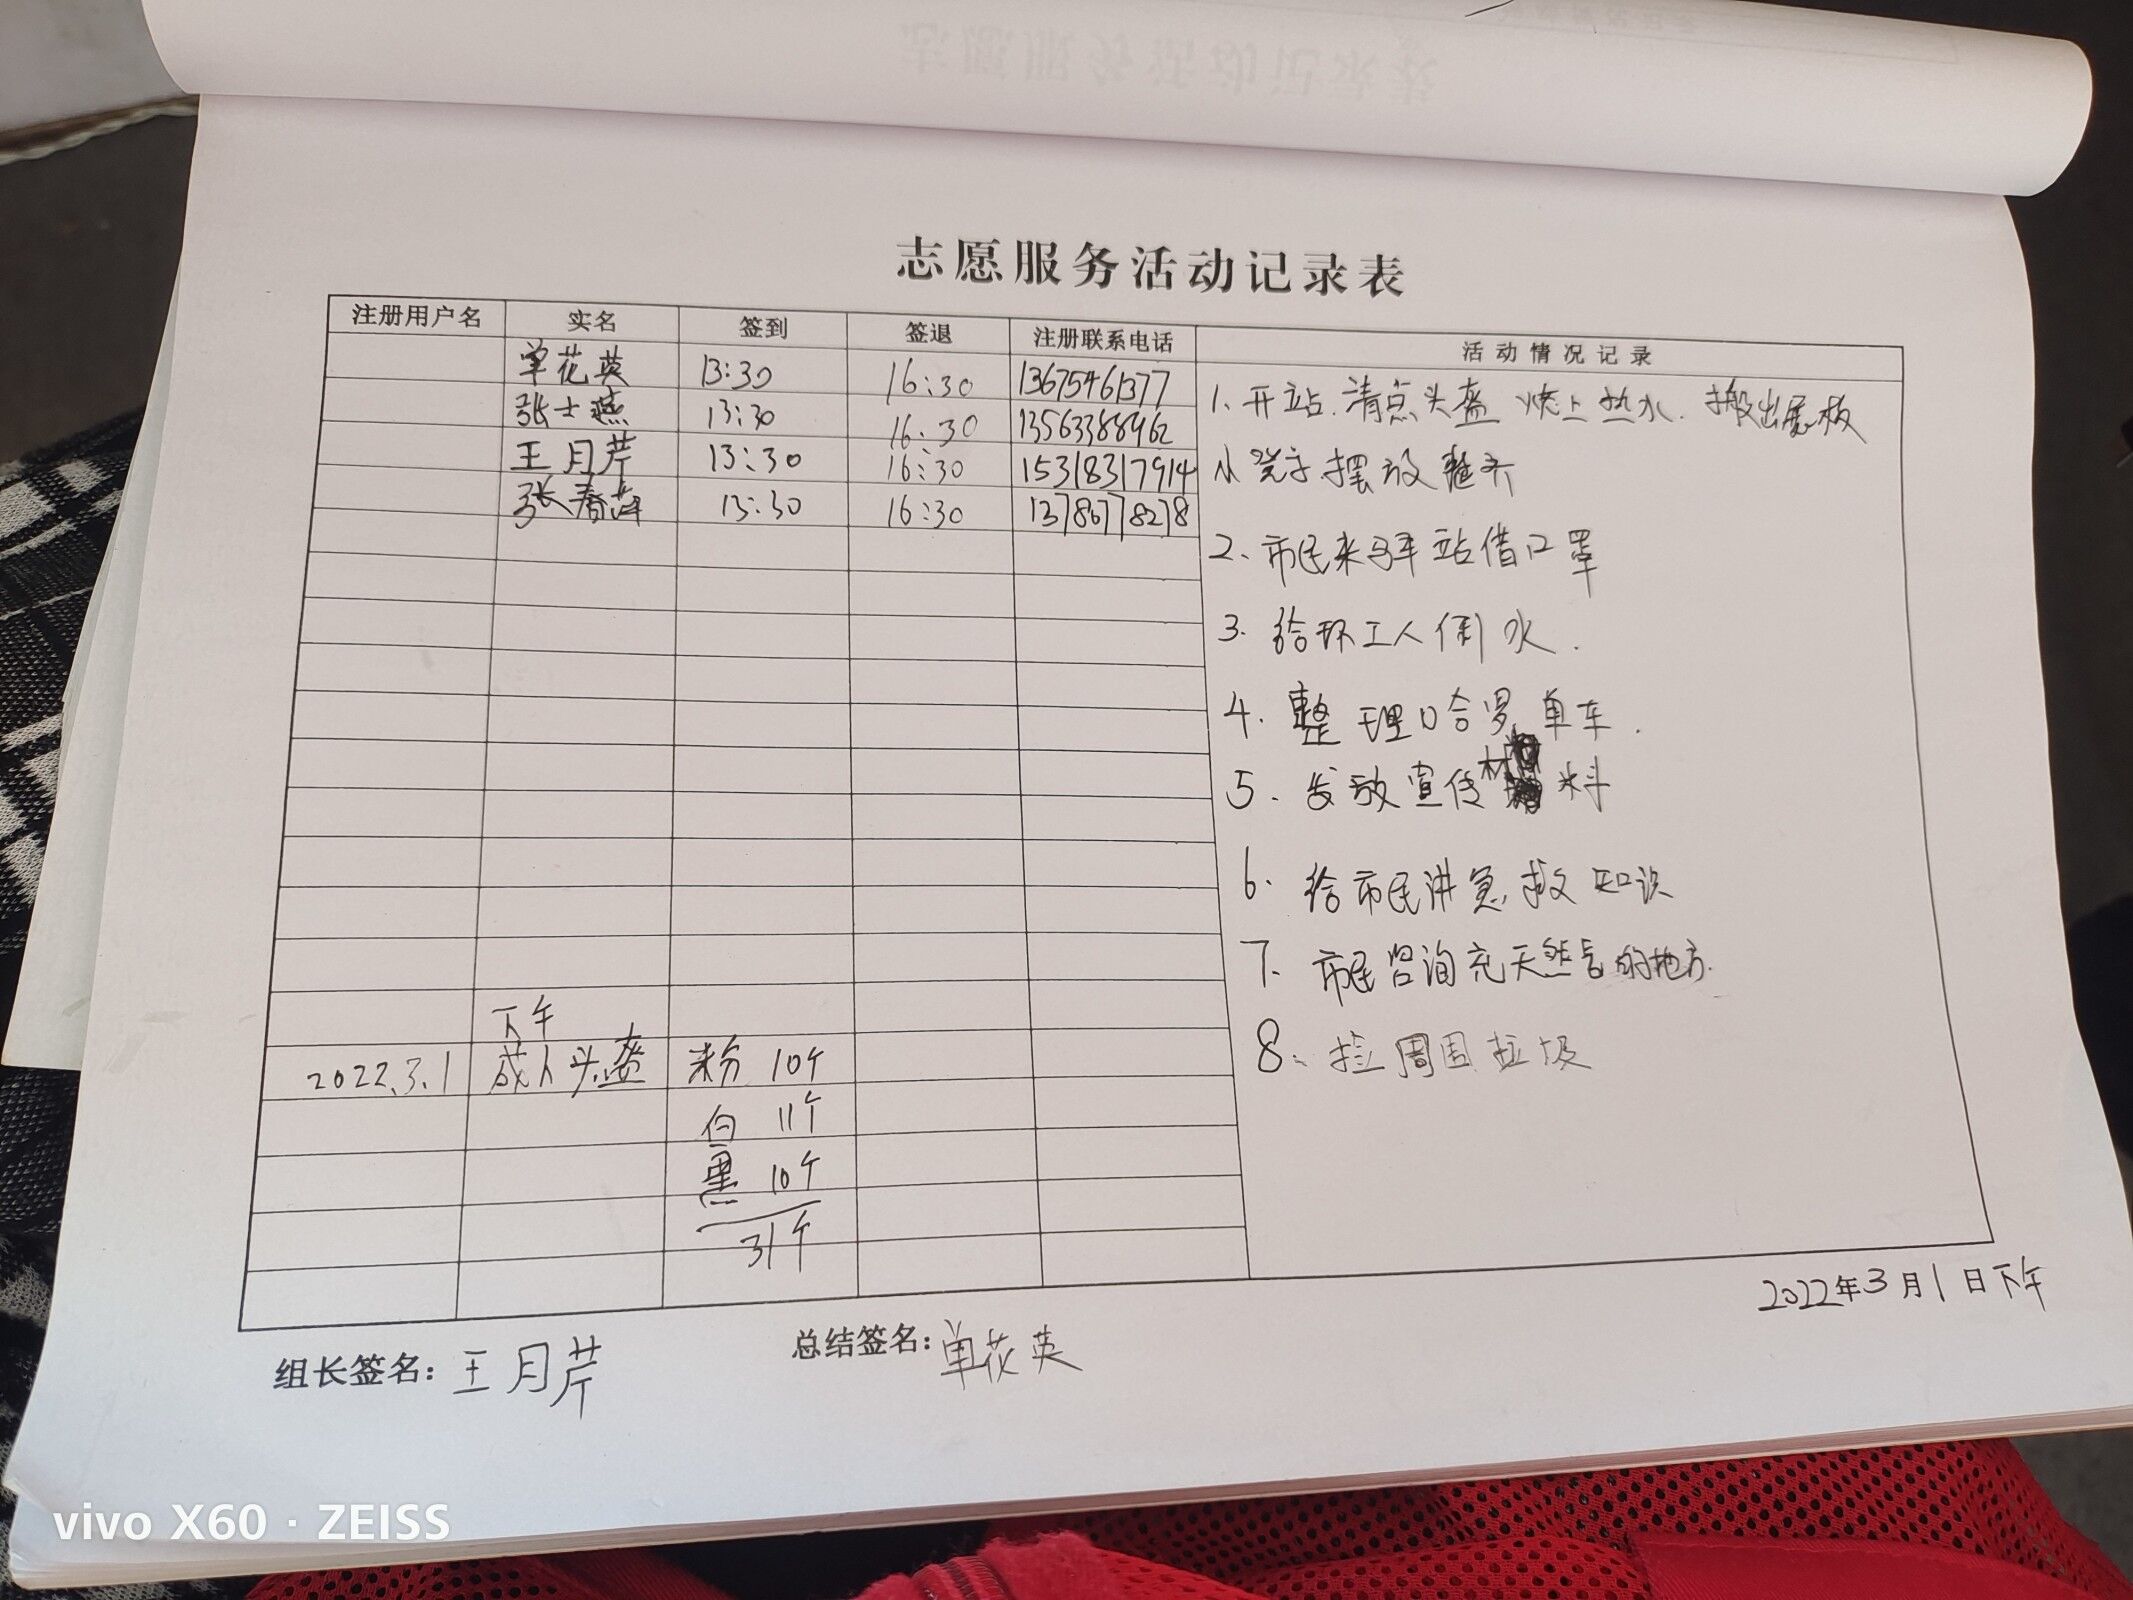 志愿服务活动记录表
注册用户名 实名 签到 签退 注册联系电话 活动情况记录
单花英 13:30 16:30 13675461377
张士燕 13:30 16:30 13563388962
王月芹 13:30 16:30 15318317914
张春萍 13:30 16:30 13786778278
1、开站.清点头盔 烧上热水.搬出展板
小凳子摆放整齐
2、市民来驿站借口罩
3.给环工人倒水.
4.整理哈罗单车.
5.发放宣传材料
6.给市民讲急救知识
7.市民咨询充天然气的地方.
8、捡周围垃圾
下午
2022.3.1 成人头盔 粉 10个
白 11个
黑 10个
31个
2022年3月1日下午
组长签名：王月芹 总结签名：单花英
vivo X60 · ZEISS